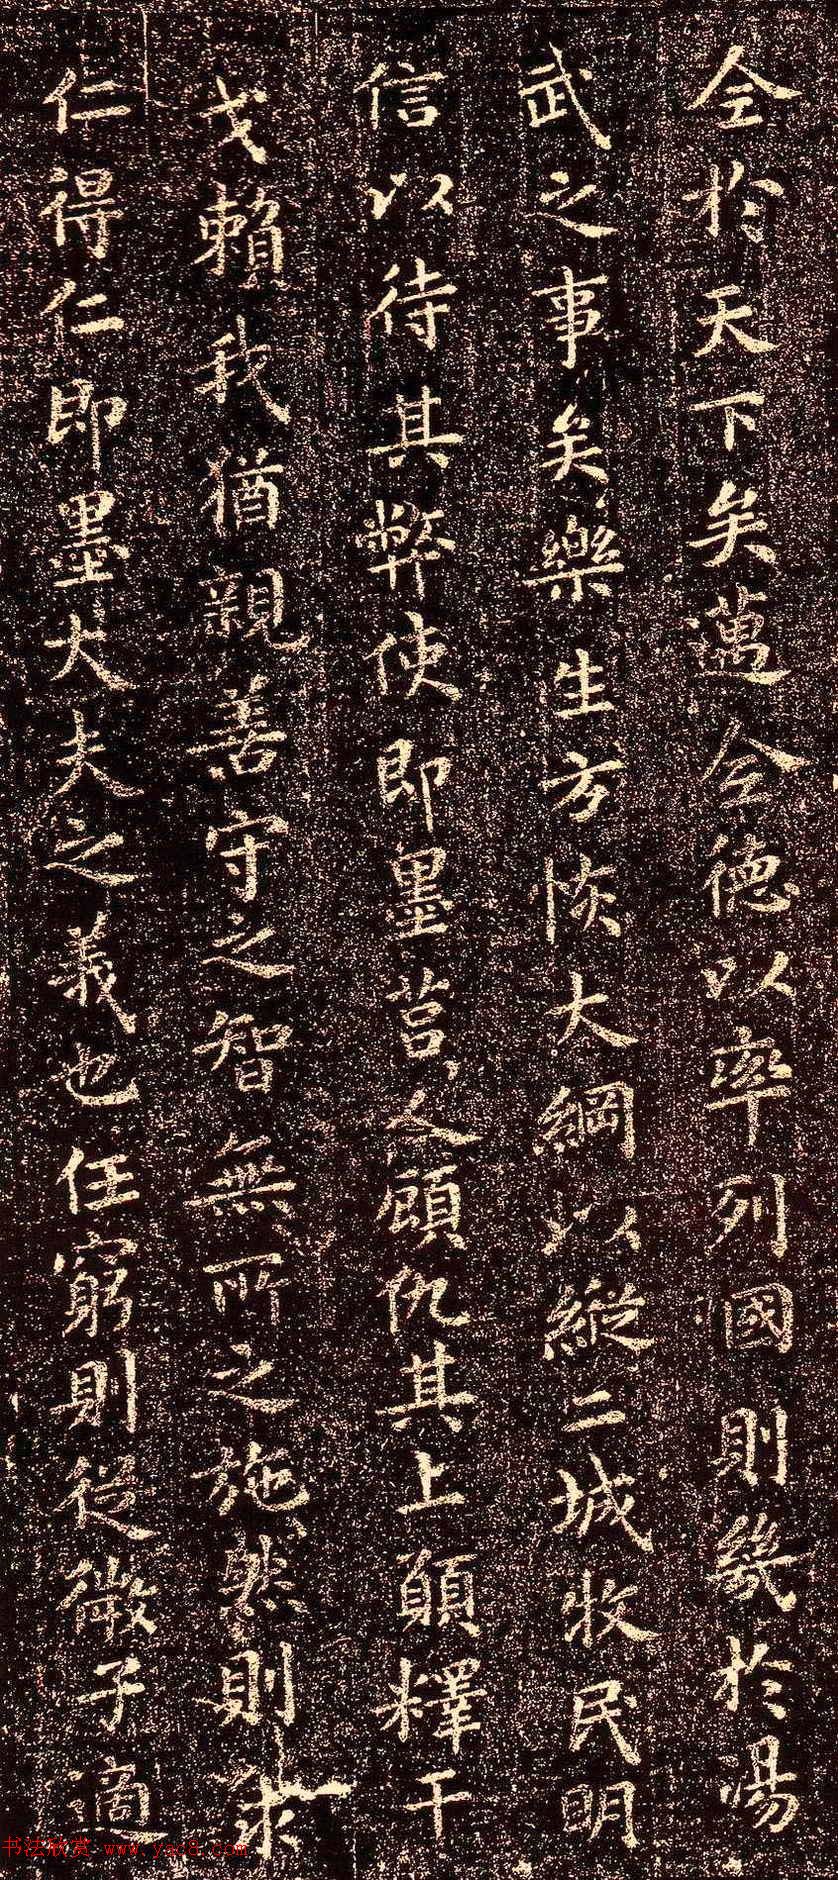 令於天下矣邁令德以率列國則幾於湯
武之事矣樂生方恢大綱以縱二城收民明
信以待其弊使即墨莒人顧仇其上願釋干
戈賴我猶親善守之智無所之施然則求
仁得仁即墨大夫之義也任窮則從微子適
书法欣赏 www.yac8.com